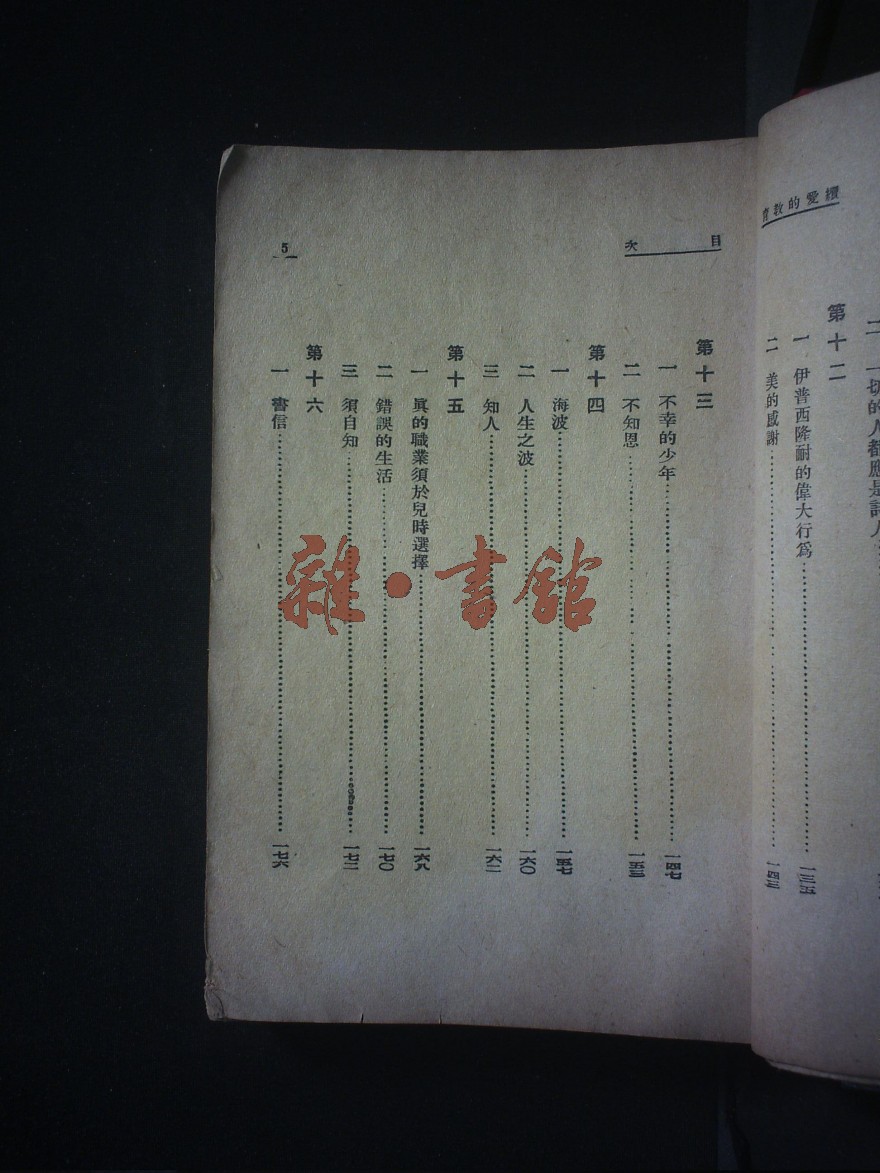 續愛的教育
二 一切的人都應是詩人……
第十二
一 伊普西隆耐的偉大行為……一三五
二 美的感謝……一四三
目次
5
第十三
一 不幸的少年……一四七
二 不知恩……一五三
第十四
一 海波……一五七
二 人生之波……一六〇
三 知人……一六二
第十五
一 眞的職業須於兒時選擇……一六八
二 錯誤的生活……一七〇
三 須自知……一七二
第十六
一 書信……一七六
雜·書館